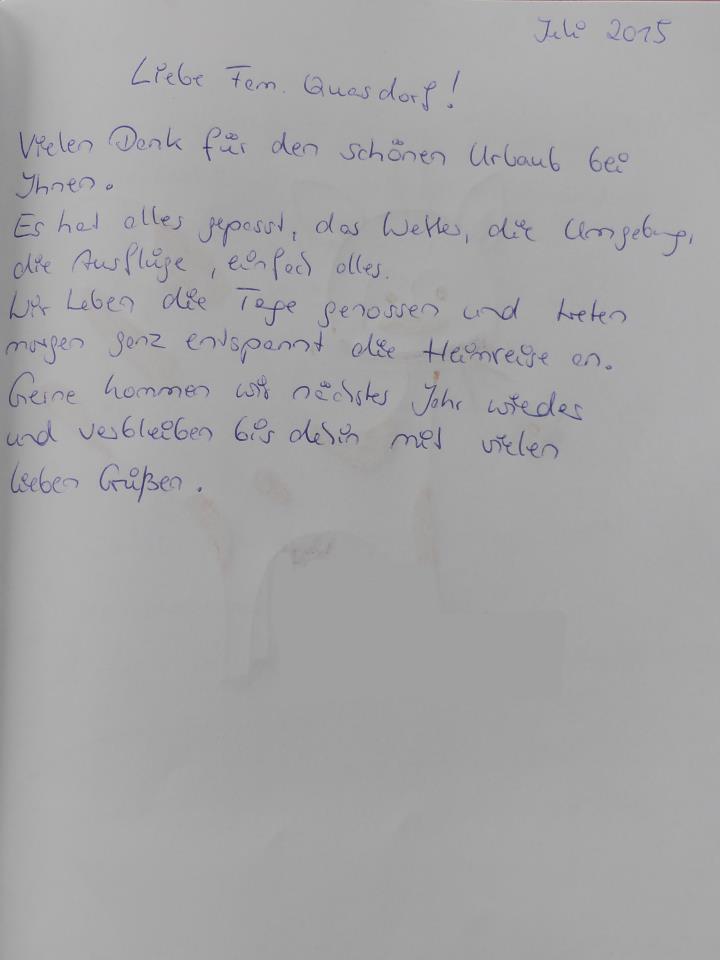 Juli 2015
Liebe Fam. Quasdorf!
Vielen Dank für den schönen Urlaub bei
Ihnen.
Es hat alles gepasst, das Wetter, die Umgebung,
die Ausflüge, einfach alles.
Wir haben die Tage genossen und treten
morgen ganz entspannt die Heimreise an.
Gerne kommen wir nächstes Jahr wieder
und verbleiben bis dahin mit vielen
lieben Grüßen.